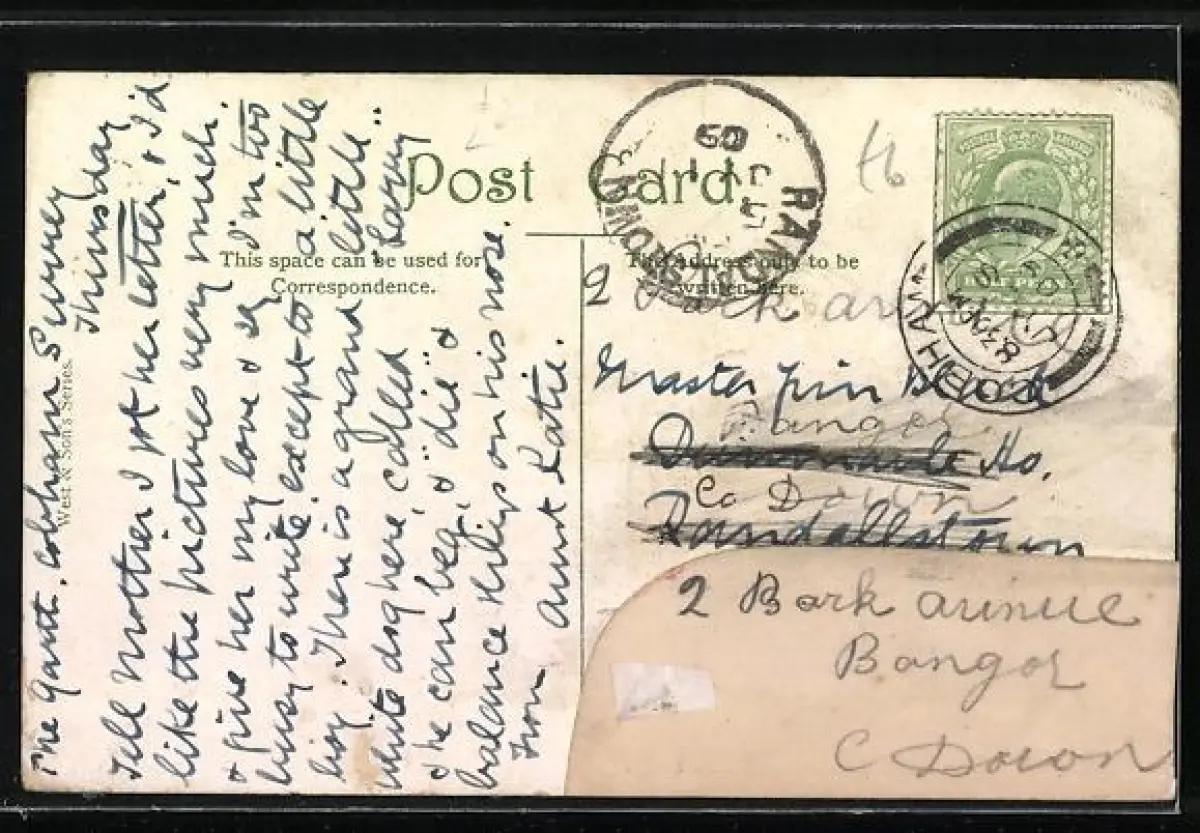 The Gant. Cobham Surrey
Thursday
Tell mother I got her letter, & I'd
like the pictures very much.
& give her my love & say I'm too
busy to write except to a little
boy. There is a grand little
white dog here, called "Larry"
& he can beg, & "die" &
balance things on his nose.
from Aunt Katie.
West & Son's Series.
Post Card
This space can be used for
Correspondence.
The Address only to be
written here.
2 Park
Master Jim
Bangor
Ho.
Co Down
Randallstown
2 Bark avinue
Bangor
C Down
09
COBHAM